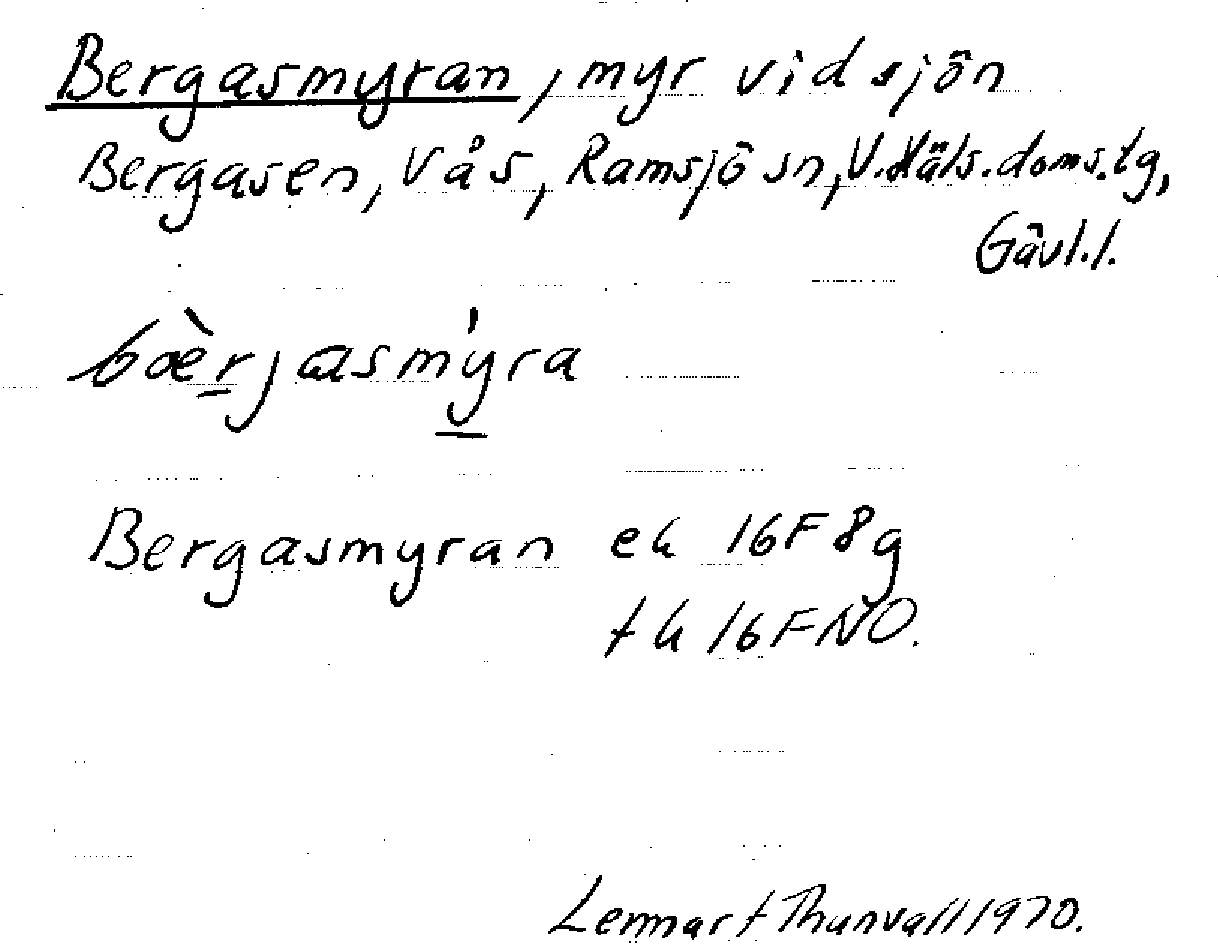 Bergasmyran, myr vid sjön
Bergasen, Vås, Ramsjö sn, V.Häls.doms.tg,
Gävl.l.
bæ̀rjasmýra
Bergasmyran ek 16F 8g
tk 16F NO.
Lennart Thunvall 1970.